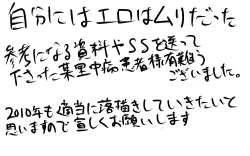 自分にはエロはムリだった
参考になる資料やSSを送って
下さった葉里中病患者様有難う
ございました。
2010年も適当に落描きしていきたいと
思いますので宜しくお願いします